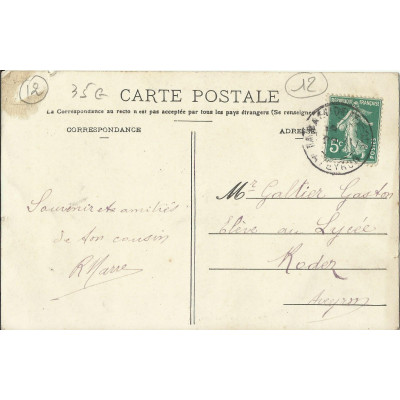 12
35€
12
CARTE POSTALE
La Correspondance au recto n'est pas acceptée par tous les pays étrangers (Se renseigner
CORRESPONDANCE
ADRESSE
5c
POSTES
Souvenir et amitiés
de ton cousin
R Marre
Mr Galtier Gaston
Élève au Lycée
Rodez
Aveyron